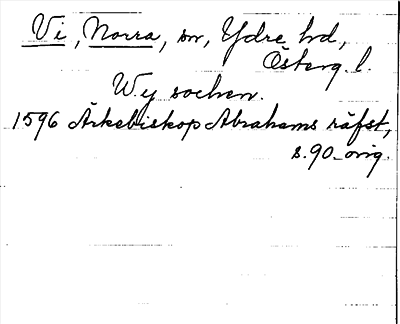 Vi, Norra, sn, Ydre hd,
Österg. l.
Wy sochen.
1596 Ärkebiskop Abrahams räfst,
s. 90 orig.